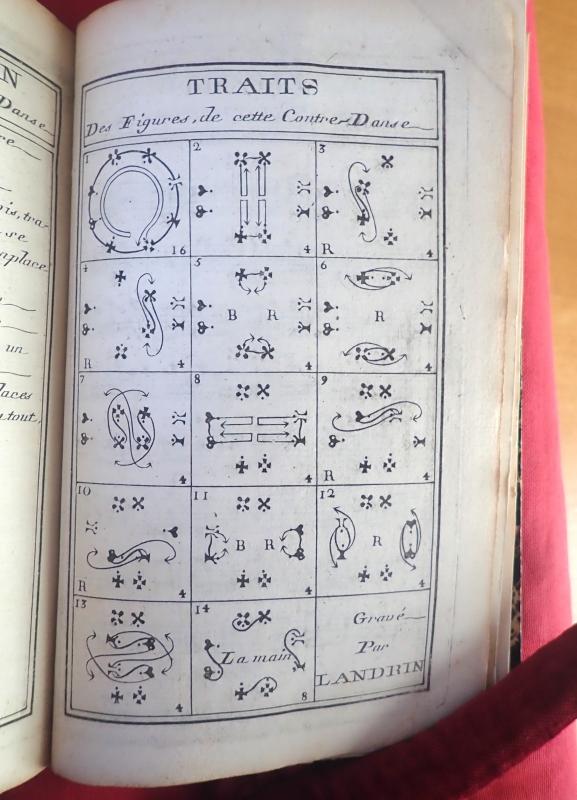 N
Danse
re
ois, tra-
se
mplace
un
laces
utout,
TRAITS
Des Figures, de cette Contre-Danse
1
16
2
4
3
R
4
4
R
4
5
B R
4
6
R
4
7
4
8
4
9
R
4
10
R
4
11
B R
4
12
R
4
13
4
14
La main
8
Gravé
Par
LANDRIN